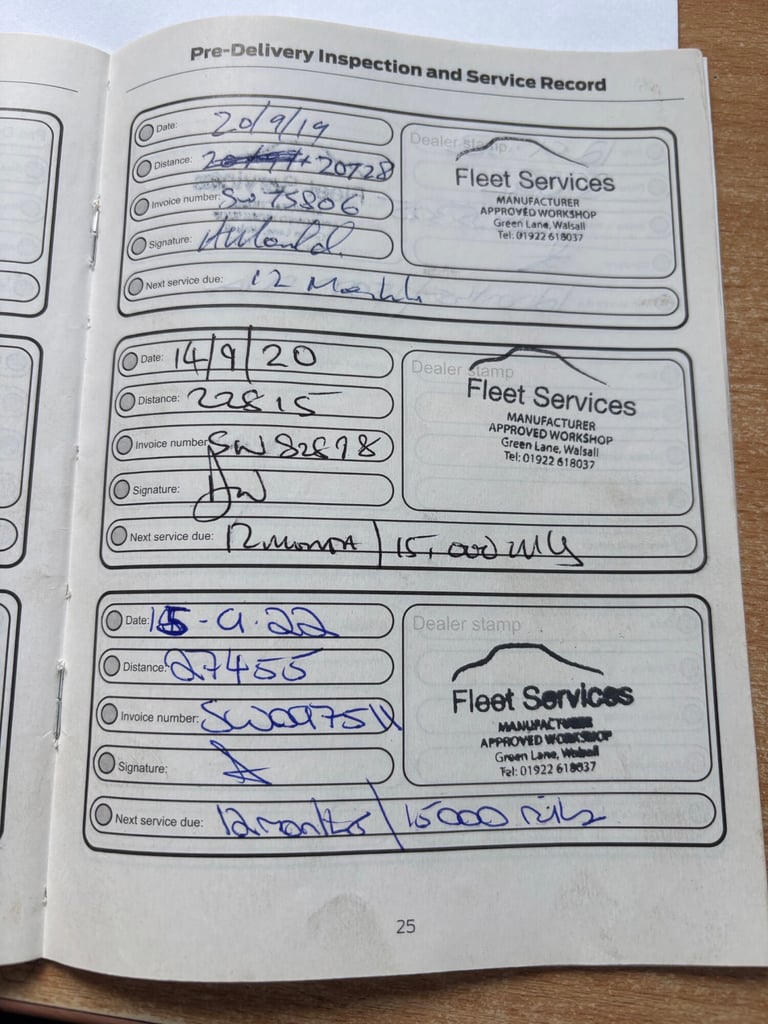 Pre-Delivery Inspection and Service Record
Date: 20/9/19
Distance: 20728
Invoice number: SW 75806
Signature:
Next service due: 12 Months
Dealer stamp
Fleet Services
MANUFACTURER
APPROVED WORKSHOP
Green Lane, Walsall
Tel: 01922 618037
Date: 14/9/20
Distance: 22815
Invoice number: SW 82898
Signature:
Next service due: 12 MONTH / 15,000 MLS
Dealer stamp
Fleet Services
MANUFACTURER
APPROVED WORKSHOP
Green Lane, Walsall
Tel: 01922 618037
Date: 15-9-22
Distance: 27455
Invoice number:
Signature:
Next service due: 12 months / 15000 miles
Dealer stamp
Fleet Services
MANUFACTURER
APPROVED WORKSHOP
Green Lane, Walsall
Tel: 01922 618037
25